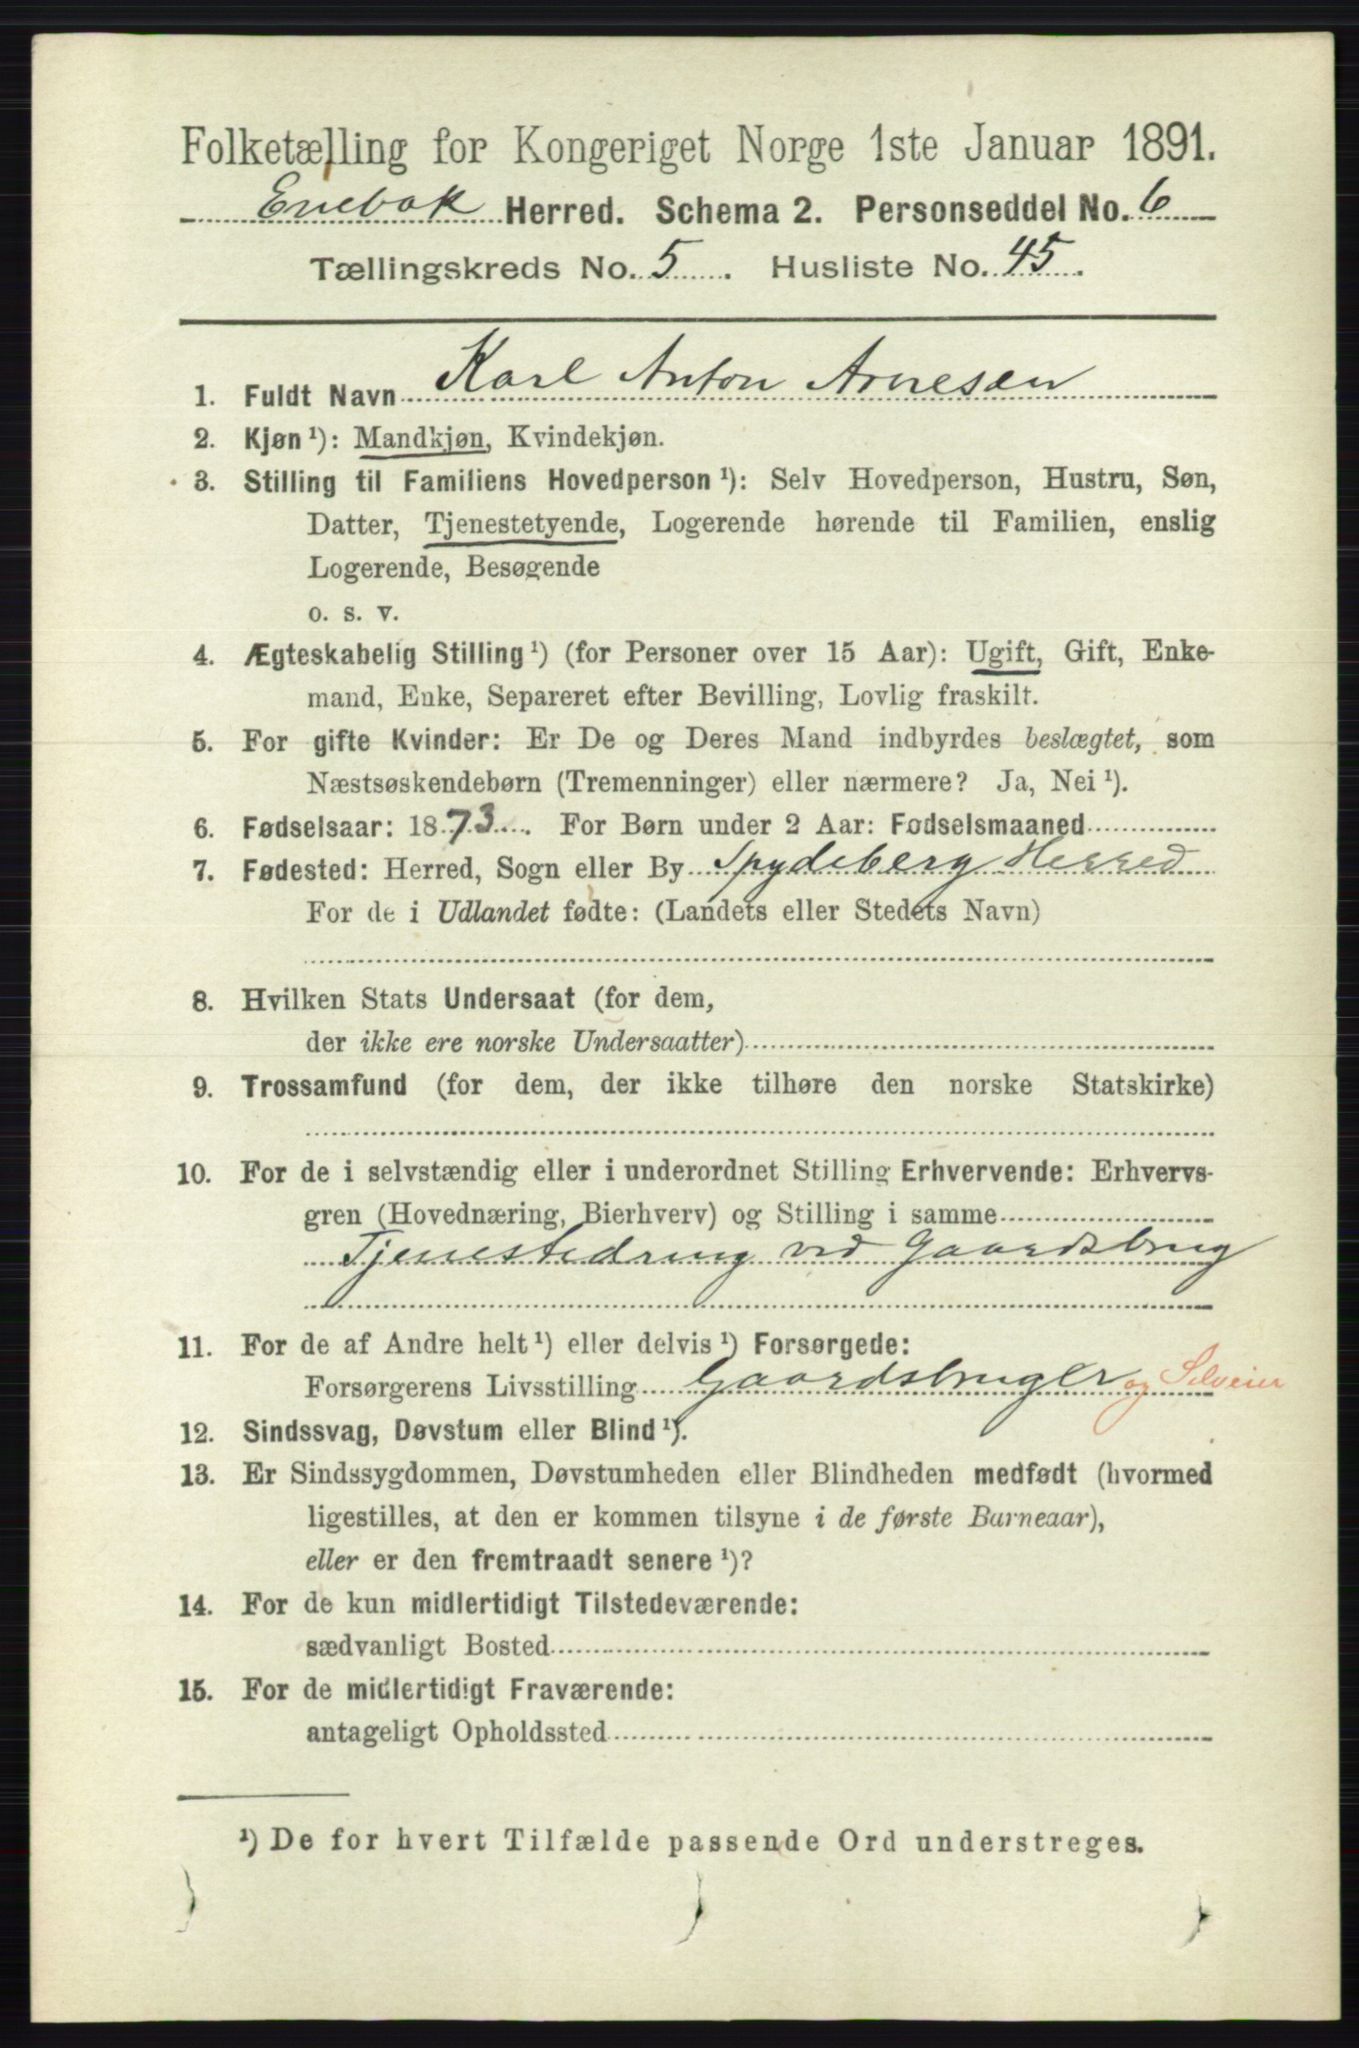 Folketælling for Kongeriget Norge 1ste Januar 1891.
Enebak Herred. Schema 2. Personseddel No. 6
Tællingskreds No. 5. Husliste No. 45.
1. Fuldt Navn Karl Anton Arnesen
2. Kjøn ¹): Mandkjøn, Kvindekjøn.
3. Stilling til Familiens Hovedperson ¹): Selv Hovedperson, Hustru, Søn,
Datter, Tjenestetyende, Logerende hørende til Familien, enslig
Logerende, Besøgende
o. s. v.
4. Ægteskabelig Stilling ¹) (for Personer over 15 Aar): Ugift, Gift, Enke-
mand, Enke, Separeret efter Bevilling, Lovlig fraskilt.
5. For gifte Kvinder: Er De og Deres Mand indbyrdes beslægtet, som
Næstsøskendebørn (Tremenninger) eller nærmere? Ja, Nei ¹).
6. Fødselsaar: 1873. For Børn under 2 Aar: Fødselsmaaned
7. Fødested: Herred, Sogn eller By Spydeberg Herred
For de i Udlandet fødte: (Landets eller Stedets Navn)
8. Hvilken Stats Undersaat (for dem,
der ikke ere norske Undersaatter)
9. Trossamfund (for dem, der ikke tilhøre den norske Statskirke)
10. For de i selvstændig eller i underordnet Stilling Erhvervende: Erhvervs-
gren (Hovednæring, Bierhverv) og Stilling i samme
Tjenestedreng ved Gaardsbrug
11. For de af Andre helt ¹) eller delvis ¹) Forsørgede:
Forsørgerens Livsstilling Gaardsbruger og Selveier
12. Sindssvag, Døvstum eller Blind ¹).
13. Er Sindssygdommen, Døvstumheden eller Blindheden medfødt (hvormed
ligestilles, at den er kommen tilsyne i de første Barneaar),
eller er den fremtraadt senere ¹)?
14. For de kun midlertidigt Tilstedeværende:
sædvanligt Bosted
15. For de midlertidigt Fraværende:
antageligt Opholdssted
¹) De for hvert Tilfælde passende Ord understreges.